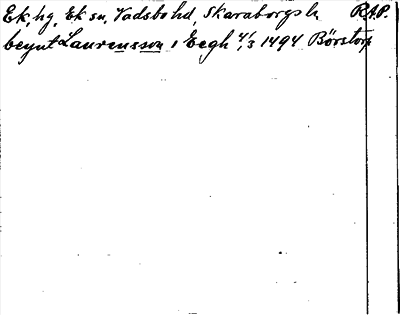 Ek, hg, Ek sn, Vadsbo hd, Skaraborgs l. R.A.P.
beynt Laurensson i Eegh 4/3 1494 Börstorp